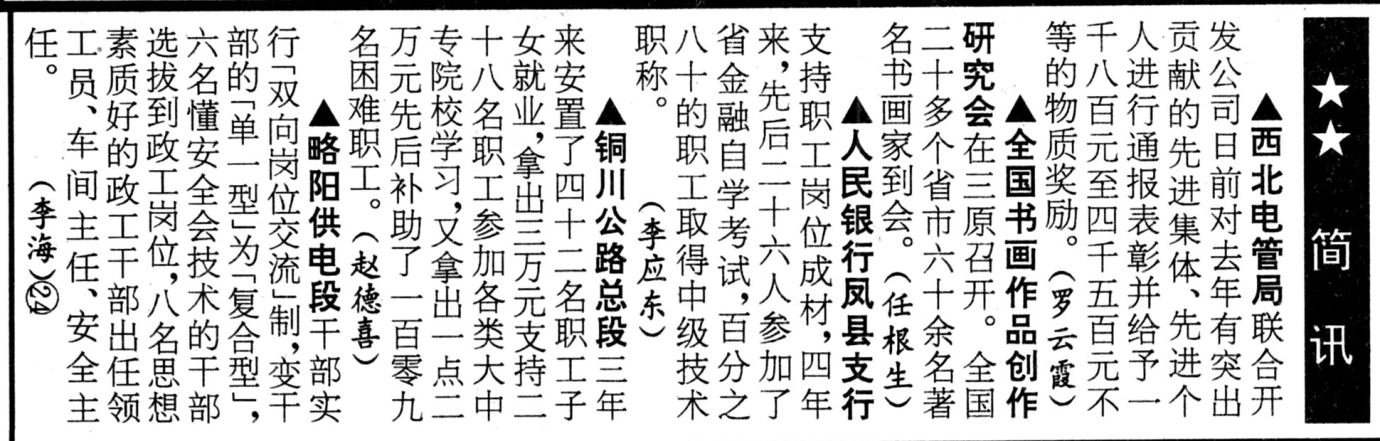 ★★ 简讯
▲西北电管局联合开
发公司日前对去年有突出
贡献的先进集体、先进个
人进行通报表彰并给予一
千八百元至四千五百元不
等的物质奖励。（罗云霞）
▲全国书画作品创作
研究会在三原召开。全国
二十多个省市六十余名著
名书画家到会。（任根生）
▲人民银行凤县支行
支持职工岗位成材，四年
来，先后二十六人参加了
省金融自学考试，百分之
八十的职工取得中级技术
职称。（李应东）
▲铜川公路总段三年
来安置了四十二名职工子
女就业，拿出三万元支持二
十八名职工参加各类大中
专院校学习，又拿出一点二
万元先后补助了一百零九
名困难职工。（赵德喜）
▲略阳供电段干部实
行「双向岗位交流」制，变干
部的「单一型」为「复合型」，
六名懂安全会技术的干部
选拔到政工岗位，八名思想
素质好的政工干部出任领
工员、车间主任、安全主
任。（李海）㉔